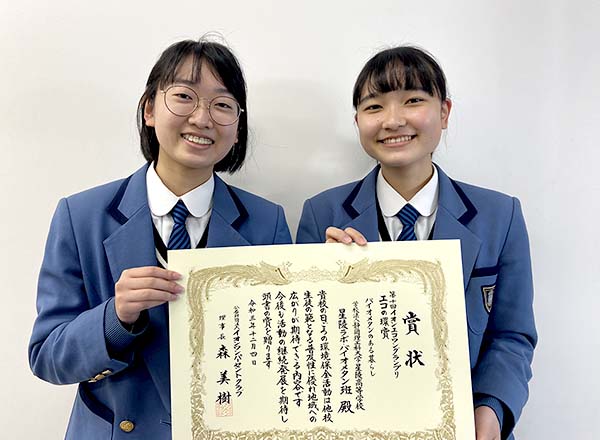 賞状
第十回イオンエコワングランプリ
エコの環賞
バイオメタンのある暮らし
学校法人静岡理工科大学星陵高等学校
星陵ラボバイオメタン班 殿
貴校の日ごろの環境保全活動は他校
生徒の範となる普及性に優れ地域への
広がりが期待できる内容です
今後も活動の継続発展を期待し
頭書の賞を贈ります
令和三年十二月四日
公益財団法人イオンワンパーセントクラブ
理事長 森 美樹